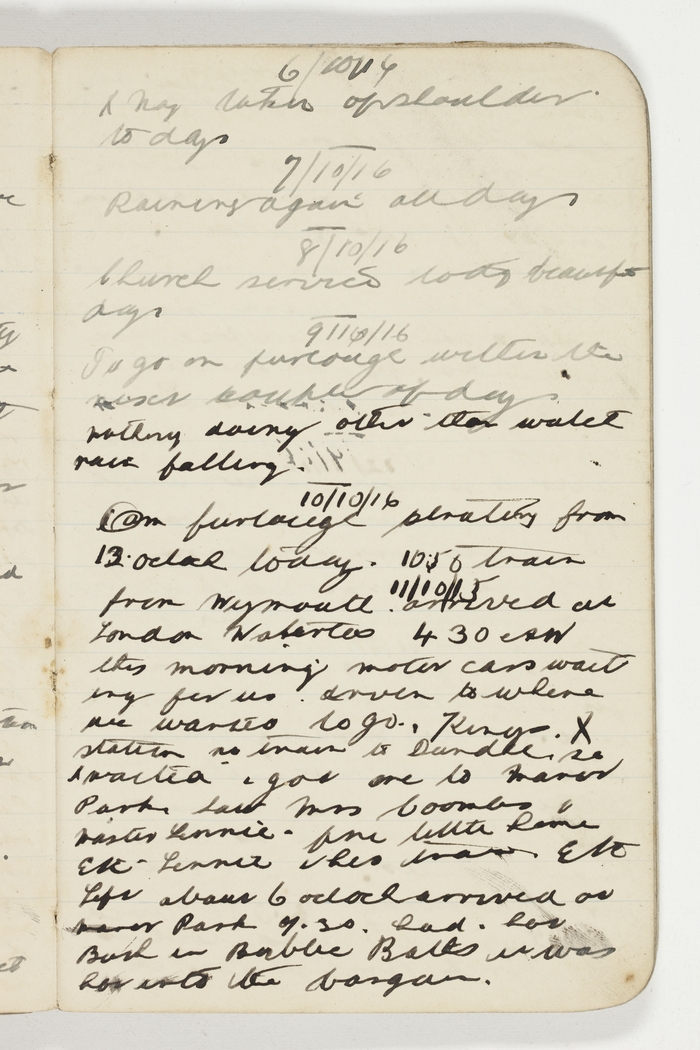 6/10/16
X Ray taken of shoulder
to days
7/10/16
Raining again all days
8/10/16
Church service today beautift
days
9/10/16
To go on furlouge within the
next couple of days
nothing doing other than watch
rain falling.
10/10/16
On furlouge starting from
12 oclock today. 10.50 train
from Wymouth. 11/10/15 arrived at
London Waterloo 4 30 am
this morning motor cars wait
ing for us. driven to where
we wanted to go. Kings. X
station no train to Dundee, so
waited & got one to Manor
Park saw Mrs Coombs &
master Lennie. fine little home
Etc Lennie & his train Etc
Left about 6 oclock arrived at
Manor Park 7.30. had. hot
Bath in Public Baths it was
hot into the bargain.